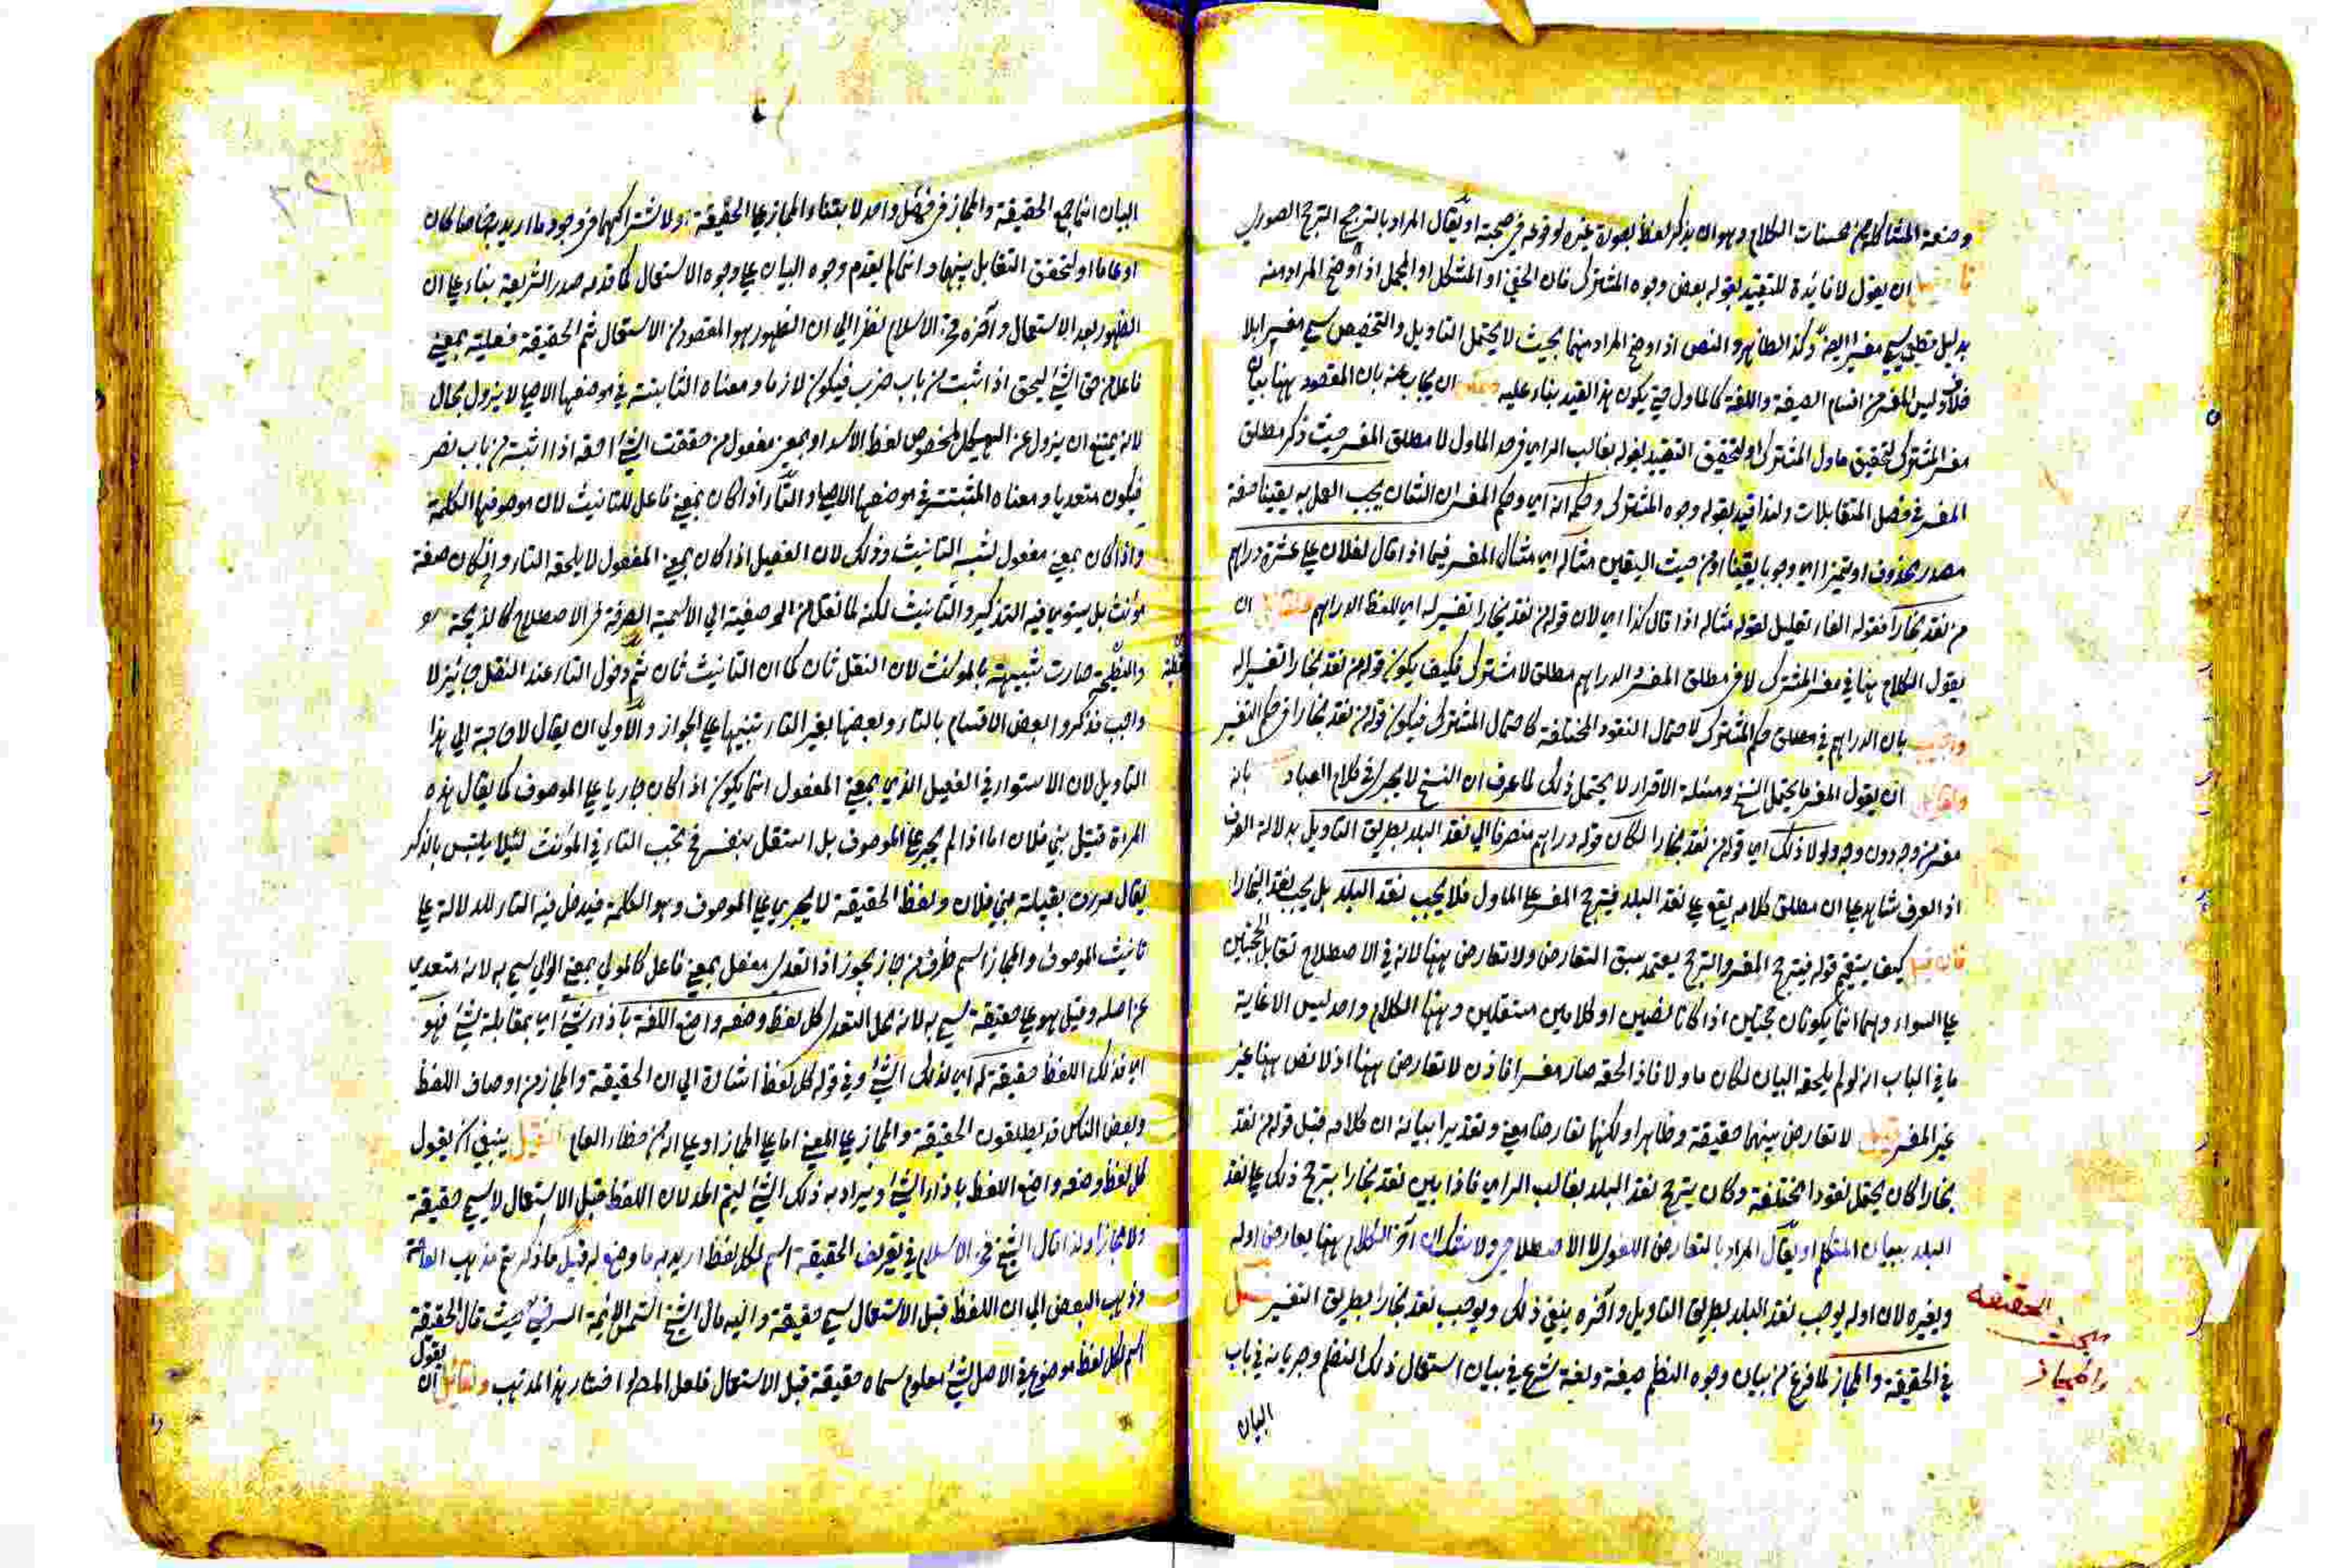 وصنعة المشاكلة من محسنات الكلام وهو ان يذكر لفظ بصورة غيره لوقوعه في صحبته او يقال المراد بالترجح الترجح الصوري
ان يقول لا فائدة للتقييد بقوله بعض وجوه المشترك فان الخفي او المشكل او المجمل اذا اوضح المراد منه
بدليل قطعي يسمي مفسرا ايضا وكذا الظاهر والنص اذا اوضح المراد منهما بحيث لا يحتمل التاويل والتخصيص سمي مفسرا بلا
خلاف وليس المفسر من اقسام الصيغة واللغة كالماول حتي يكون هذا القيد بناء عليه ان يجاب عنه بان المقصود ههنا بيان
مفسر المشترك لتحقيق ماول المشترك او لتحقيق التقييد بقوله بغالب الراي في حد الماول لا مطلق المفسر حيث ذكر مطلق
المفسر في فصل المتقابلات ولهذا قيد بقوله وجوه المشترك وحكمه انه اي وحكم المفسر ان الثقات يجب العمل به يقينا صفة
مصدر محذوف او تمييز اي وجوبا يقينا او من حيث اليقين مثاله اي مثال المفسر فيما اذا قال لفلان علي عشرة دراهم
من نقد بخارا فقوله الفاء تعليل لقوله مثاله اذا قال كذا اي لان قوله من نقد بخارا تفسير له اي للفظ الدراهم ان
يقول الكلام ههنا في مفسر المشترك لا في مطلق المفسر والدراهم مطلق لا مشترك فكيف يكون قوله من نقد بخارا تفسيرا له
بان الدراهم في مطلق حكم المشترك لاحتمال النقود المختلفة كاحتمال المشترك فيكون قوله من نقد بخارا في حكم التفسير
ان يقول المفسر ما يحتمل النسخ ومسئلة الاقرار لا يحتمل ذلك لما عرف ان النسخ لا يجري في كلام العباد بانه
مفسر من وجه دون وجه ولولا ذلك اي قوله من نقد بخارا لكان قوله دراهم منصرفا الي نقد البلد بطريق التاويل بدلالة العرف
اذ العرف شاهد علي ان مطلق كلامه يقع علي نقد البلد فيترجح المفسر علي الماول فلا يجب نقد البلد بل يجب نقد البخارا
فان قيل كيف يستقيم قوله فيترجح المفسر والترجح يعتمد سبق التعارض ولا تعارض ههنا لانه في الاصطلاح تقابل الحجتين
علي السواء وهما انما يكونان حجتين اذا كانا نصين او كلامين مستقلين وههنا الكلام واحد ليس الا غاية
ما في الباب انه لو لم يلحقه البيان لكان ماولا فاذا لحقه صار مفسرا فاذن لا تعارض ههنا اذ لا نص ههنا غير
غير المفسر قيل لا تعارض بينهما حقيقة وظاهرا ولكنهما تعارضا معني وتقديرا بيانه ان كلامه قبل قوله من نقد
بخارا كان يحتمل نقودا مختلفة وكان يترجح نقد البلد بغالب الراي فاذا بين نقد بخارا يترجح ذلك علي نقد
البلد ببيان المتكلم او يقال المراد بالتعارض اللغوي لا الاصطلاحي ولا شك ان آخر الكلام ههنا يعارض اوله
ويغيره لان اوله يوجب نقد البلد بطريق التاويل وآخره ينفي ذلك ويوجب نقد بخارا بطريق التفسير فصل
في الحقيقة والمجاز لما فرغ من بيان وجوه النظم صيغة ولغة شرع في بيان استعمال ذلك النظم وجريانه في باب
البيان
الحقيقه
مبحث
والمجاز
البيان انما جمع الحقيقة والمجاز في فصل واحد لابتناء المجاز علي الحقيقة او لاشتراكهما في وجود ما اريد بهما خاصا كان
او عاما او لتحقق التقابل بينهما وانما لم يقدم وجوه البيان علي وجوه الاستعمال كما قدمه صدر الشريعة بناء علي ان
الظهور بعد الاستعمال وآخره فخر الاسلام نظرا الي ان الظهور هو المقصود من الاستعمال ثم الحقيقة فعيلة بمعني
فاعل من حق الشئ يحق اذا ثبت من باب ضرب فيكون لازما ومعناه الثابتة في موضعها الاصلي لا يزول بحال
لانه يمتنع ان يزول عن الهيكل المخصوص لفظ الاسد او بمعني مفعول من حققت الشئ احقه اذا اثبته من باب نصر
فيكون متعديا ومعناه المثبتة في موضعها الاصلي والتاء اذا كان بمعني فاعل للتانيث لان موصوفها الكلمة
واذا كان بمعني مفعول لشبه التانيث وذلك لان الفعيل اذا كان بمعني المفعول لا يلحقه التاء وان كان صفة
مؤنث بل يستوي فيه التذكير والتانيث لكنه لما نقل من الوصفية الي الاسمية الصرفة في الاصطلاح كالذبيحة
والنطيحة صارت شبيهة بالمؤنث لان النقل ثان كما ان التانيث ثان ثم دخول التاء عند النقل جائز لا
واجب فذكروا بعض الاقسام بالتاء وبعضها بغير التاء تنبيها علي الجواز والاولي ان يقال لا حاجة الي هذا
التاويل لان الاستواء في الفعيل الذي بمعني المفعول انما يكون اذا كان جاريا علي الموصوف كما يقال هذه
المراة قتيل بني فلان اما اذا لم يجر علي الموصوف بل استقل بنفسه فحينئذ تجب التاء في المؤنث لئلا يلتبس بالمذكر
يقال مررت بقتيلة بني فلان ولفظ الحقيقة لا يجري علي الموصوف وهو الكلمة فيدخل فيه التاء للدلالة علي
تانيث الموصوف والمجاز اسم ظرف من جاز يجوز اذا تعدي مفعل بمعني فاعل كالمولي بمعني الوالي سمي به لانه متعدي
عن اصله وقيل هو علي حقيقة سمي به لانه محل التعدي كل لفظ وضعه واضع اللغة باذاء شئ اي بمقابلة شئ فهو
اي فذلك اللفظ حقيقة له اي لذلك الشئ وفي قوله كل لفظ اشارة الي ان الحقيقة والمجاز من اوصاف اللفظ
وبعض الناس قد يطلقون الحقيقة والمجاز علي المعني اما علي المجاز او علي انه من خطاء العام قيل ينبغي ان يقول
كل لفظ وضعه واضع اللفظ باذاء الشئ ويراد به ذلك الشئ ليتم الحد لان اللفظ قبل الاستعمال لا يسمي حقيقة
ولا مجازا ولذا قال الشيخ فخر الاسلام في تعريف الحقيقة اسم لكل لفظ اريد به ما وضع له قيل ما ذكره مذهب العامة
وذهب البعض الي ان اللفظ قبل الاستعمال سمي حقيقة واليه مال الشيخ شمس الائمة السرخسي حيث قال الحقيقة
اسم لكل لفظ موضوع في الاصل لشئ معلوم سماه حقيقة قبل الاستعمال فلعل المصو اختار هذا المذهب ولقائل ان يقول